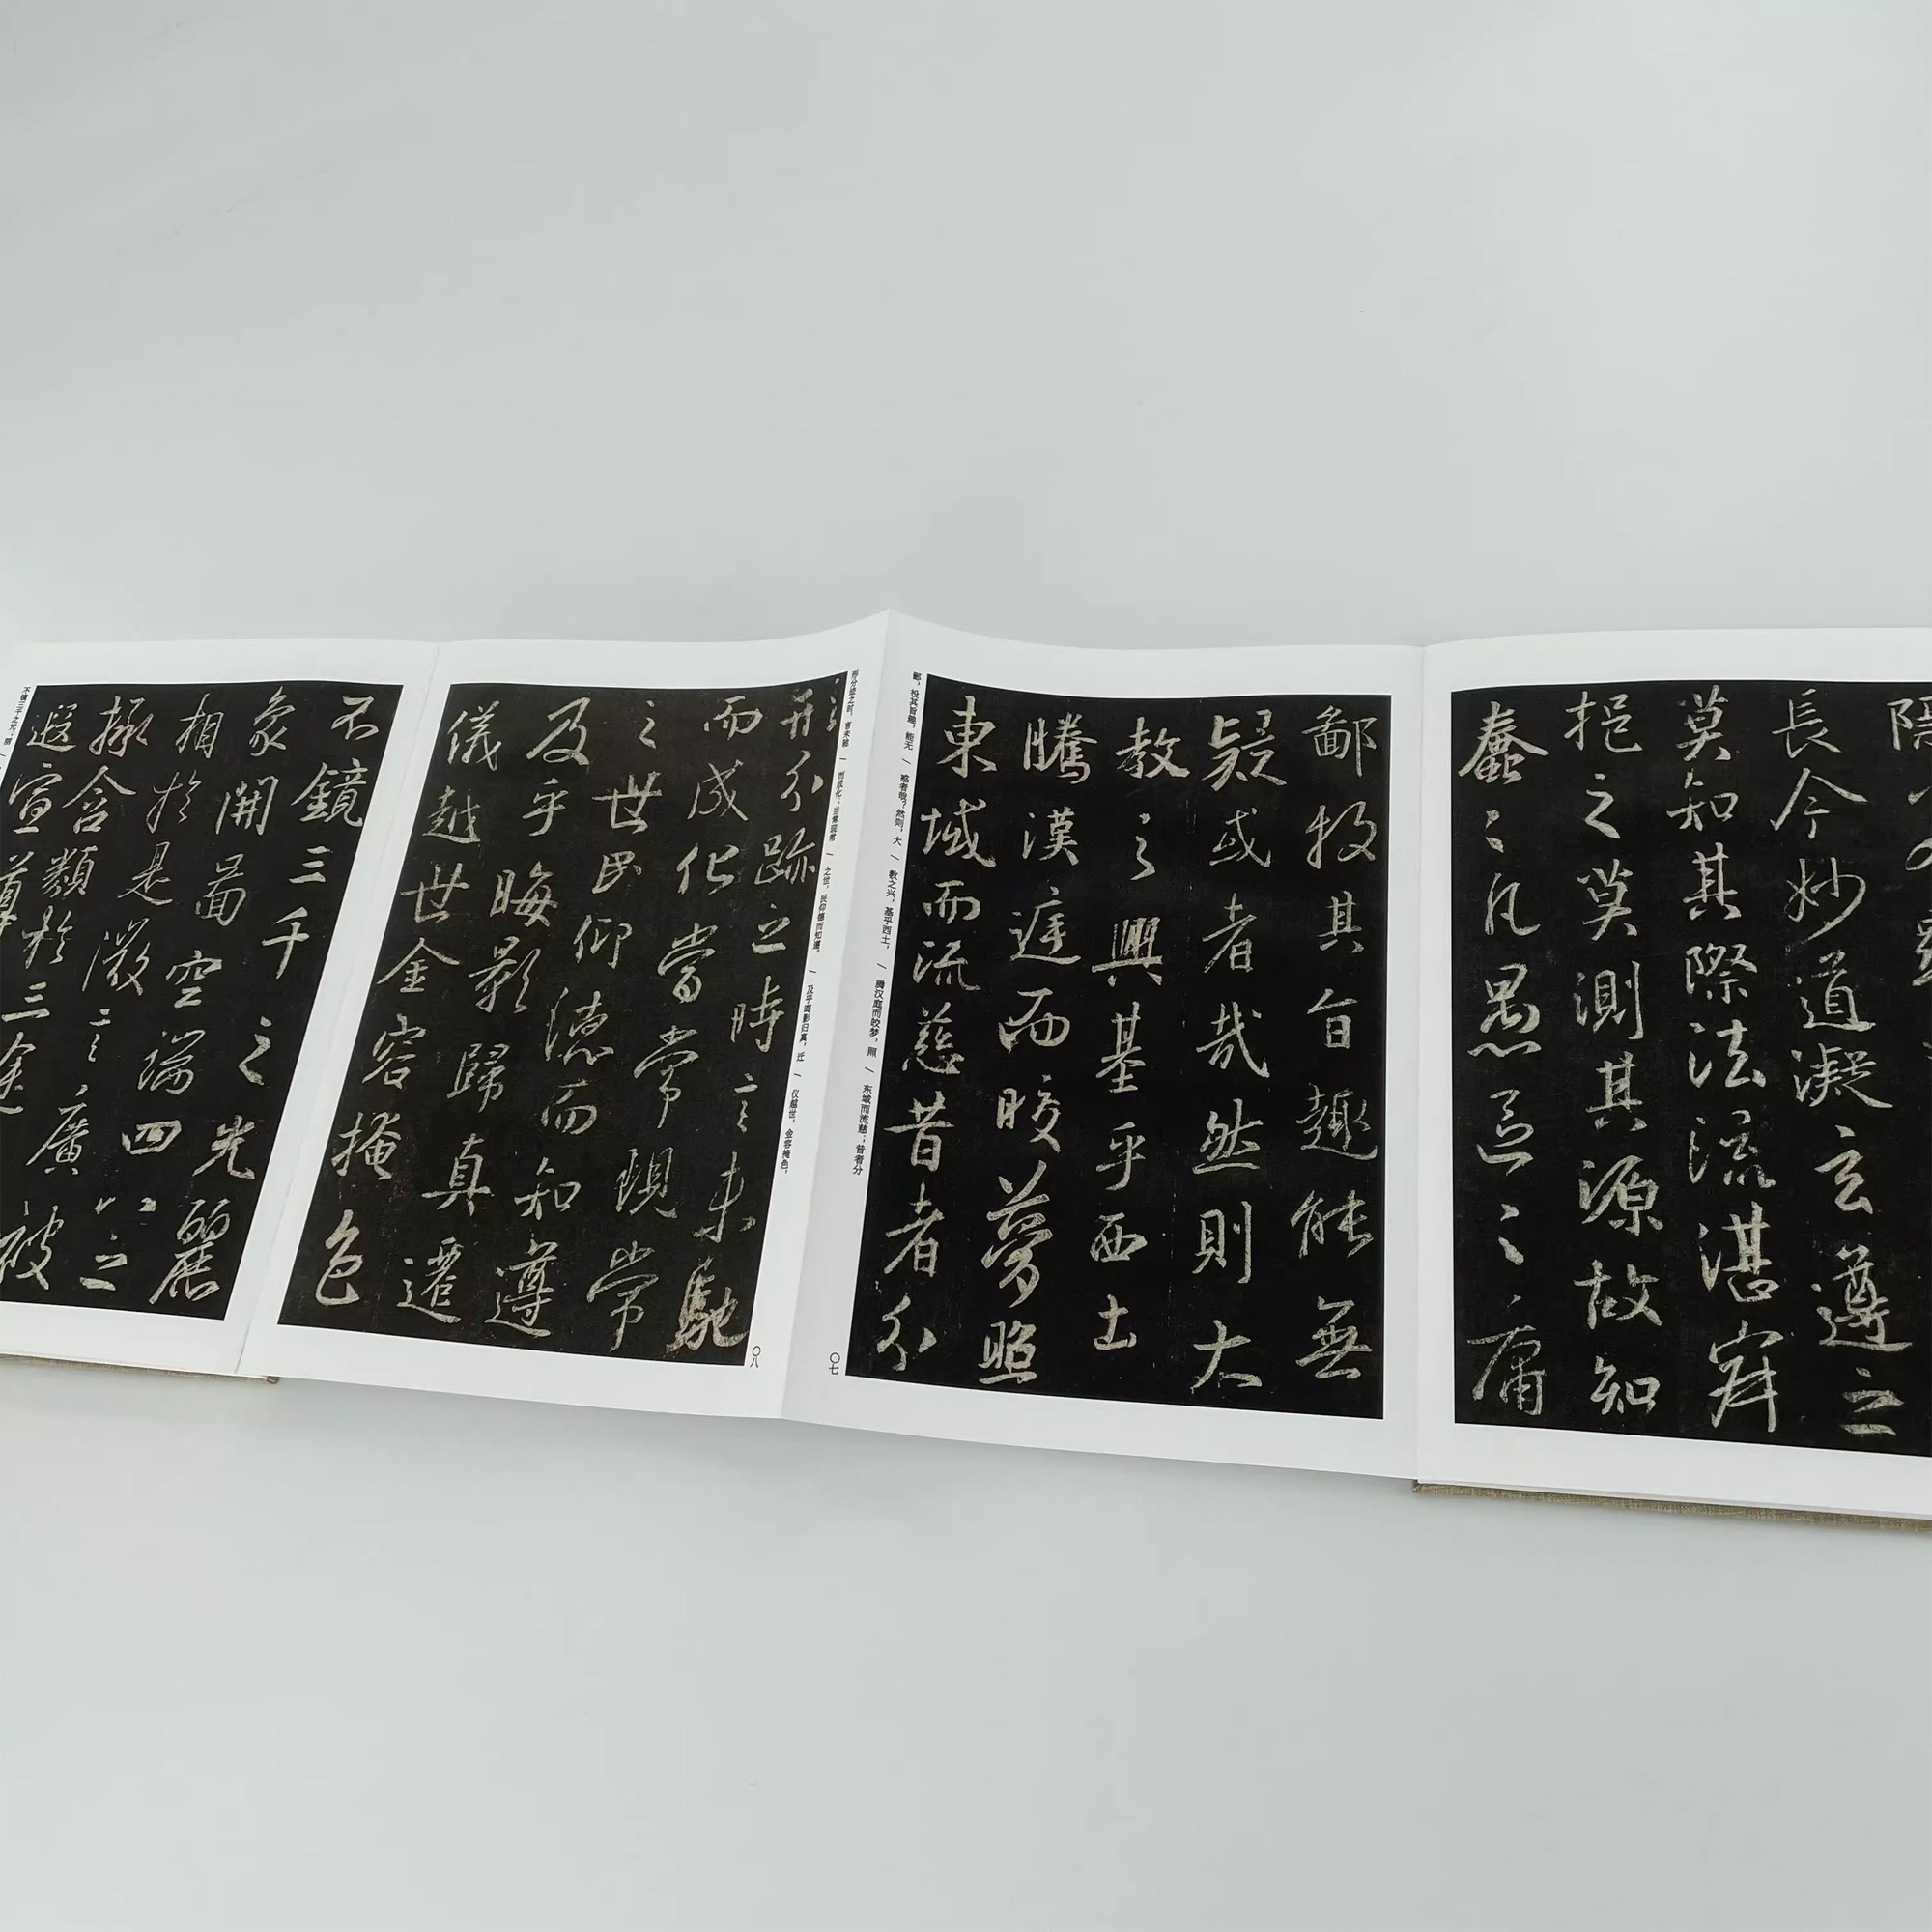 長今妙道凝玄遵之
莫知其際法流湛寂
挹之莫測其源故知
蠢〻凡愚區〻庸
鄙投其旨趣能無
疑或者哉然則大
教之興基乎西土
騰漢庭而皎夢照
東域而流慈昔者分
鄙,投其旨趣,能无 | 惑者哉?然则,大 | 教之兴,基乎西土, | 腾汉庭而皎梦,照 | 东域而流慈;昔者分
〇七
形分跡之時言未馳
而成化當常現常
之世民仰德而知遵
及乎晦影歸真遷
儀越世金容掩色
形分迹之时,言未驰 | 而成化;当常现常 | 之世,民仰德而知遵。 | 及乎晦影归真,迁 | 仪越世,金容掩色,
〇八
不鏡三千之光麗
象開啚空端四八之
相於是微言廣被
拯含類於三途
遐宣導
不镜三千之光;丽